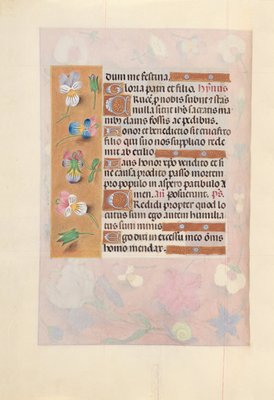 dum me festina.
Gloria patri et filio. Hymnus
Cruce p nobis subiit et stas
nulla sciit ihs sacratis ma
nibus clavis fossis ac pedibus.
Honor et benedictio sit crucifixo
filio qui suo nos supplicio rede
mit ab exilio
Laus honor xpo vendito et si
ne causa prodito passo mortem
pro populo in aspero patibulo A
men. añ Posuerunt. ps.
Credidi propter quod lo
cutus sum ego autem humilia
tus sum nimis
Ego dixi in excessu meo ois
homo mendax.